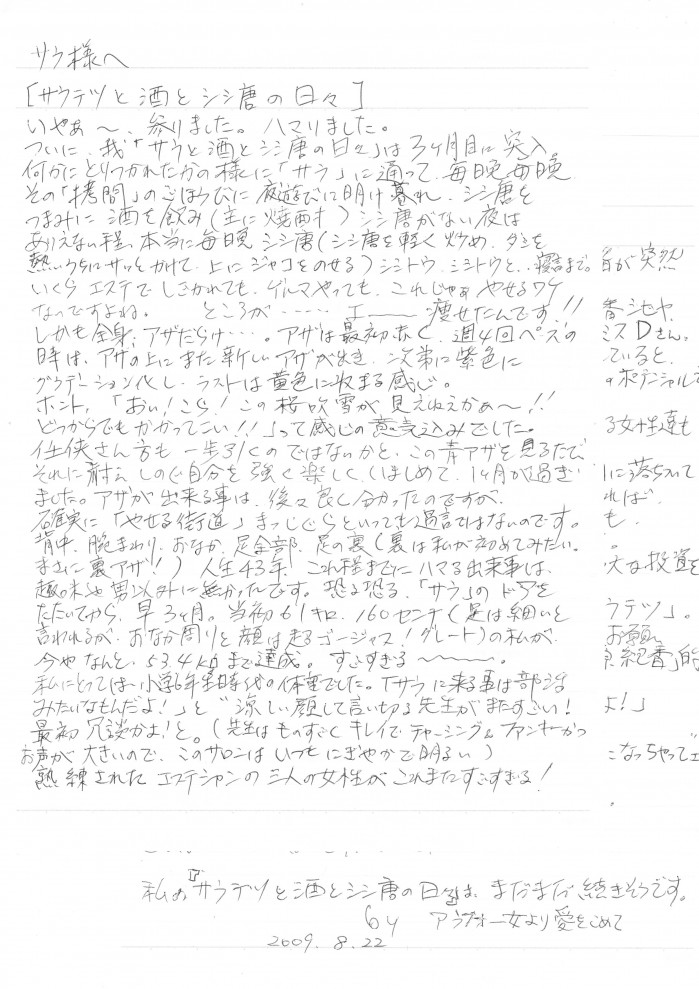 サラ様へ
[サウテツと酒とシシ唐の日々]
いやぁ〜、参りました。ハマりました。
ついに、我「サウと酒とシシ唐の日々」は3ヶ月目に突入。
何かにとりつかれたかの様に「サラ」に通って、毎晩毎晩
その「拷問」のごほうびに夜遊びに明け暮れ、シシ唐を
つまみに酒を飲み(主に焼酎す)シシ唐がない夜は
ありえない程、本当に毎晩、シシ唐(シシ唐を軽く炒め、ダシを
熱いうちにサッとかけて、上にジャコをのせる)シシトウ、シシトウと、寝言まで。
いくらエステでしごかれても、ゲルマやっても、これじゃぁやせるワケ
なってすよね。 ところが…… エ――痩せたんです!!
しかも全身、アザだらけ…。アザは最初赤く、週4回ペースの
時は、アザの上にまた新しいアザが出き、次第に紫色に
グラデーション化し、ラストは黄色に収まる感じ。
ホント、「おい!こら!この桜吹雪が見えねえかぁ〜!!
どっからでもかかってこい!!」って感じの意気込みでした。
任侠さん方も一歩引くのではないかと、この青アザを見るたび
それに耐えしのぐ自分を強く楽しく、はじめて、1ヶ月が過ぎ
ました。アザが出来る事は、後々良く分かったのですが、
確実に「やせる街道」まっしぐらといっても過言ではないのです。
背中、腕まわり、おなか、足全部、足の裏(裏は私が初めてみたい。
まさに裏アザ!)人生43年、これ程までにハマる出来事は、
趣味や男以外に無かったです。恐る恐る、「サラ」のドアを
たたいてから、早3ヶ月。当初61キロ、160センチ(足は細いと
言われるが、おなか周りと顔は走るゴージャス!グレート)の私が、
今やなんと、53.4kgまで達成。すごすぎる〜〜〜。
私にとっては、小学6年生時代の体重でした。「サラに来る事は部活
みたいなもんだよ!」と涼しい顔して言い切る先生がまたすごい!
最初冗談かよ!と。(先生はものすごくキレイでチャーミング&ファンキーかつ
お声が大きいので、このサロンはいつもにぎやかで明るい)
熟練されたエステシャンの三人の女性がこれまたすごすぎる!
が突然
香シセヤ、
ミスDさん。
ていると、
ポテンシャル
る女性達も
に落ちいて
れば、
も、
。
大な投資を
ウテツ」。
お願い。
紀香」的
よ!」
こなっちゃってエ
私の『サウテツと酒とシシ唐の日々』は、まだまだ続きそうです。
by アラフォー女より愛をこめて
2009.8.22